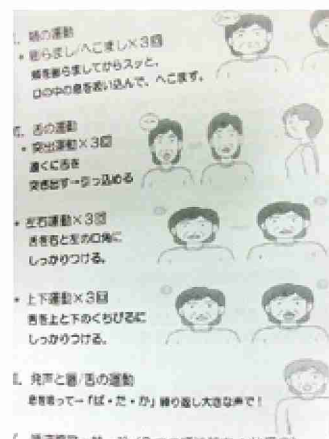 頬の運動
• 膨らまし/へこまし×3回
頬を膨らましてからスッと、
口の中の息を吸い込んで、へこます。
舌の運動
• 突出運動×3回
遠くに舌を
突き出す→引っ込める
• 左右運動×3回
舌を右と左の口角に
しっかりつける。
• 上下運動×3回
舌を上と下のくちびるに
しっかりつける。
発声と唇/舌の運動
息を吸って→「ぱ・た・か」繰り返し大きな声で!